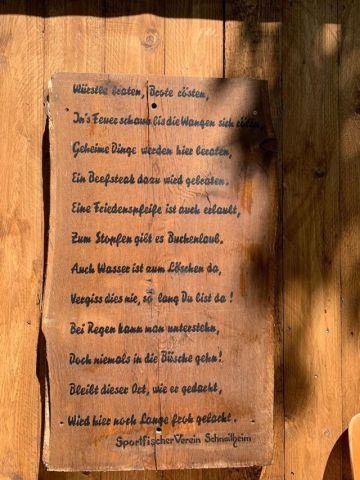 Würstle braten, Brote rösten,
In's Feuer schaun bis die Wangen sich röten,
Geheime Dinge werden hier beraten,
Ein Beefsteak dazu wird gebraten.
Eine Friedenspfeife ist auch erlaubt,
Zum Stopfen gibt es Buchenlaub.
Auch Wasser ist zum Löschen da,
Vergiss dies nie, so lang Du bist da!
Bei Regen kann man unterstehn,
Doch niemals in die Büsche gehn!
Bleibt dieser Ort, wie er gedacht,
Wird hier noch Lange froh gelacht.
Sportfischer Verein Schnaitheim